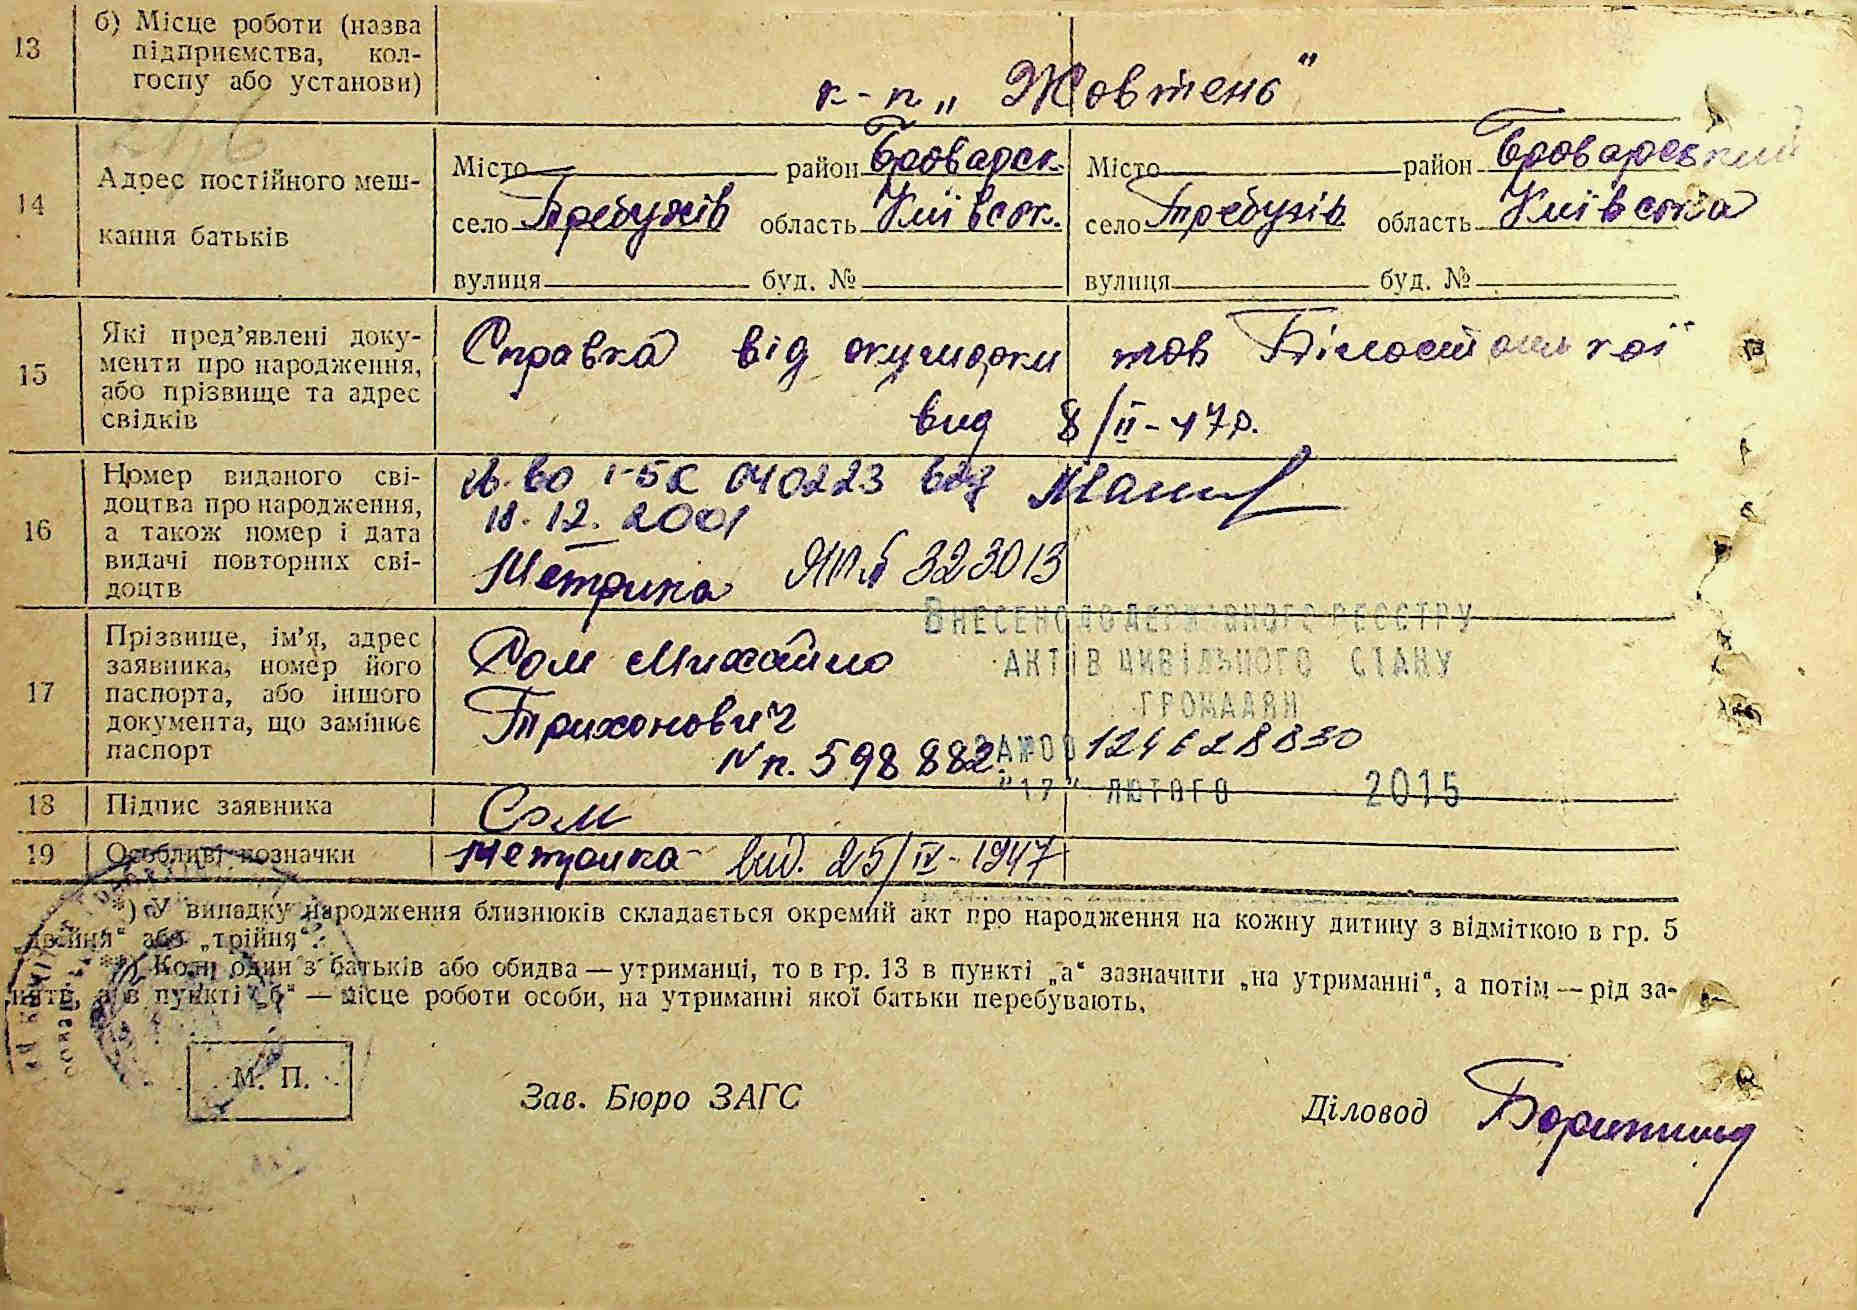 13
б) Місце роботи (назва
підприємства, кол-
госпу або установи)
к-п „Жовтень"
246
14
Адрес постійного меш-
кання батьків
Місто район Броварск.
село Требухів область Київськ.
вулиця буд. №
Місто район Броварський
село Требухів область Київська
вулиця буд. №
15
Які пред'явлені доку-
менти про народження,
або прізвище та адрес
свідків
Справка від акушорки тов Білостоцької
вид 8/II-47р.
16
Номер виданого сві-
доцтва про народження,
а також номер і дата
видачі повторних сві-
доцтв
св-во 1-БК 040223 від
18.12.2001
Метрика ЯП № 323013
17
Прізвище, ім'я, адрес
заявника, номер його
паспорта, або іншого
документа, що замінює
паспорт
Сом Михайло
Трихонович
№ п. 598882
Внесено до державного реєстру
актів цивільного стану
громадян
за № 00124628830
"17" лютого 2015
18
Підпис заявника
Сом
19
Особливі позначки
Метрика вид. 25/IV-1947
*) У випадку народження близнюків складається окремий акт про народження на кожну дитину з відміткою в гр. 5
„двійня" або „трійня".
**) Коли один з батьків або обидва — утриманці, то в гр. 13 в пункті „а" зазначити „на утриманні", а потім — рід за-
нять, а в пункті „б" — місце роботи особи, на утриманні якої батьки перебувають.
М. П.
Зав. Бюро ЗАГС
Діловод